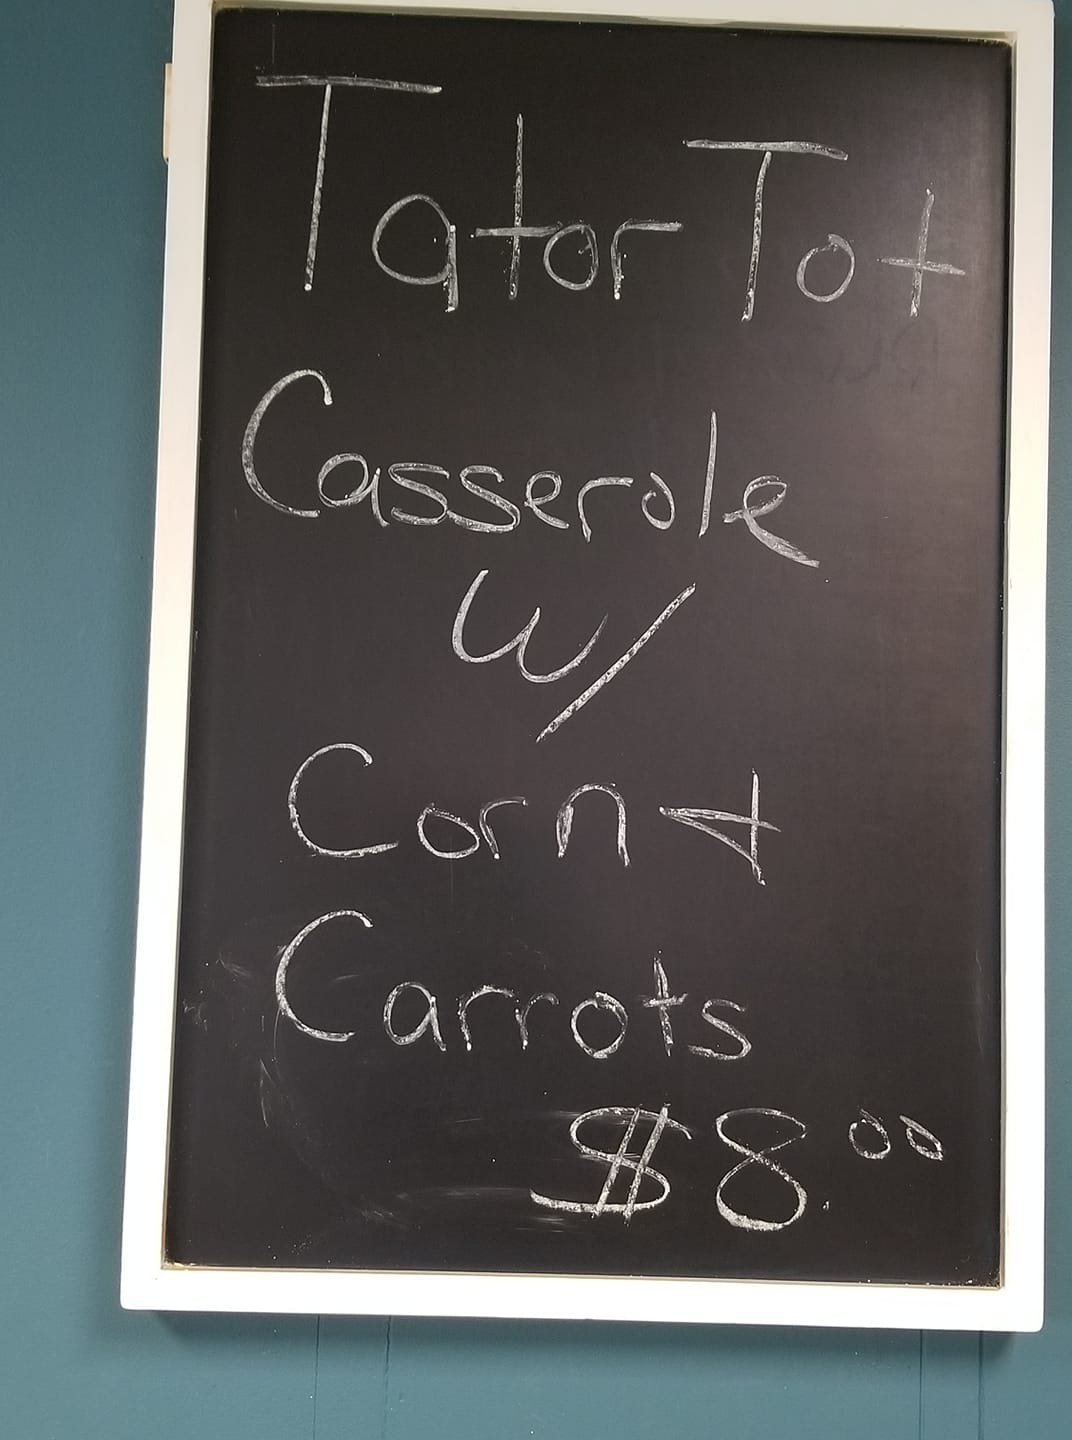 Tator Tot
Casserole
W/
Corn &
Carrots
$8.00